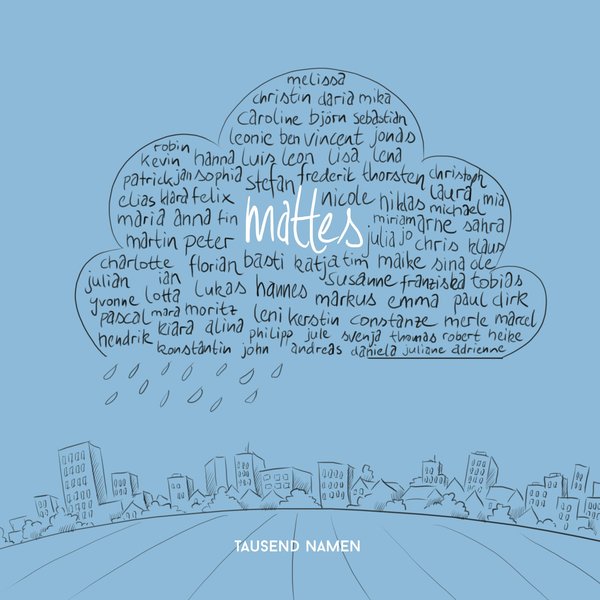 melissa
christin daria mika
caroline björn sebastian
leonie ben vincent jonas
robin
kevin hanna luis leon lisa lena
patrick jan sophia stefan frederik thorsten christoph
elias klara felix nicole niklas laura mia
michael
maria anna tin mattes miriam arne sahra
martin peter julia jo chris klaus
charlotte florian basti katja tim maike sina ole
julian ian lukas hannes susanne franziska tobias
yvonne lotta markus emma paul dirk
pascal mara moritz leni kerstin constanze merle marcel
hendrik kiara alina philipp jule svenja thomas robert heike
konstantin john andreas daniela juliane adrienne
TAUSEND NAMEN